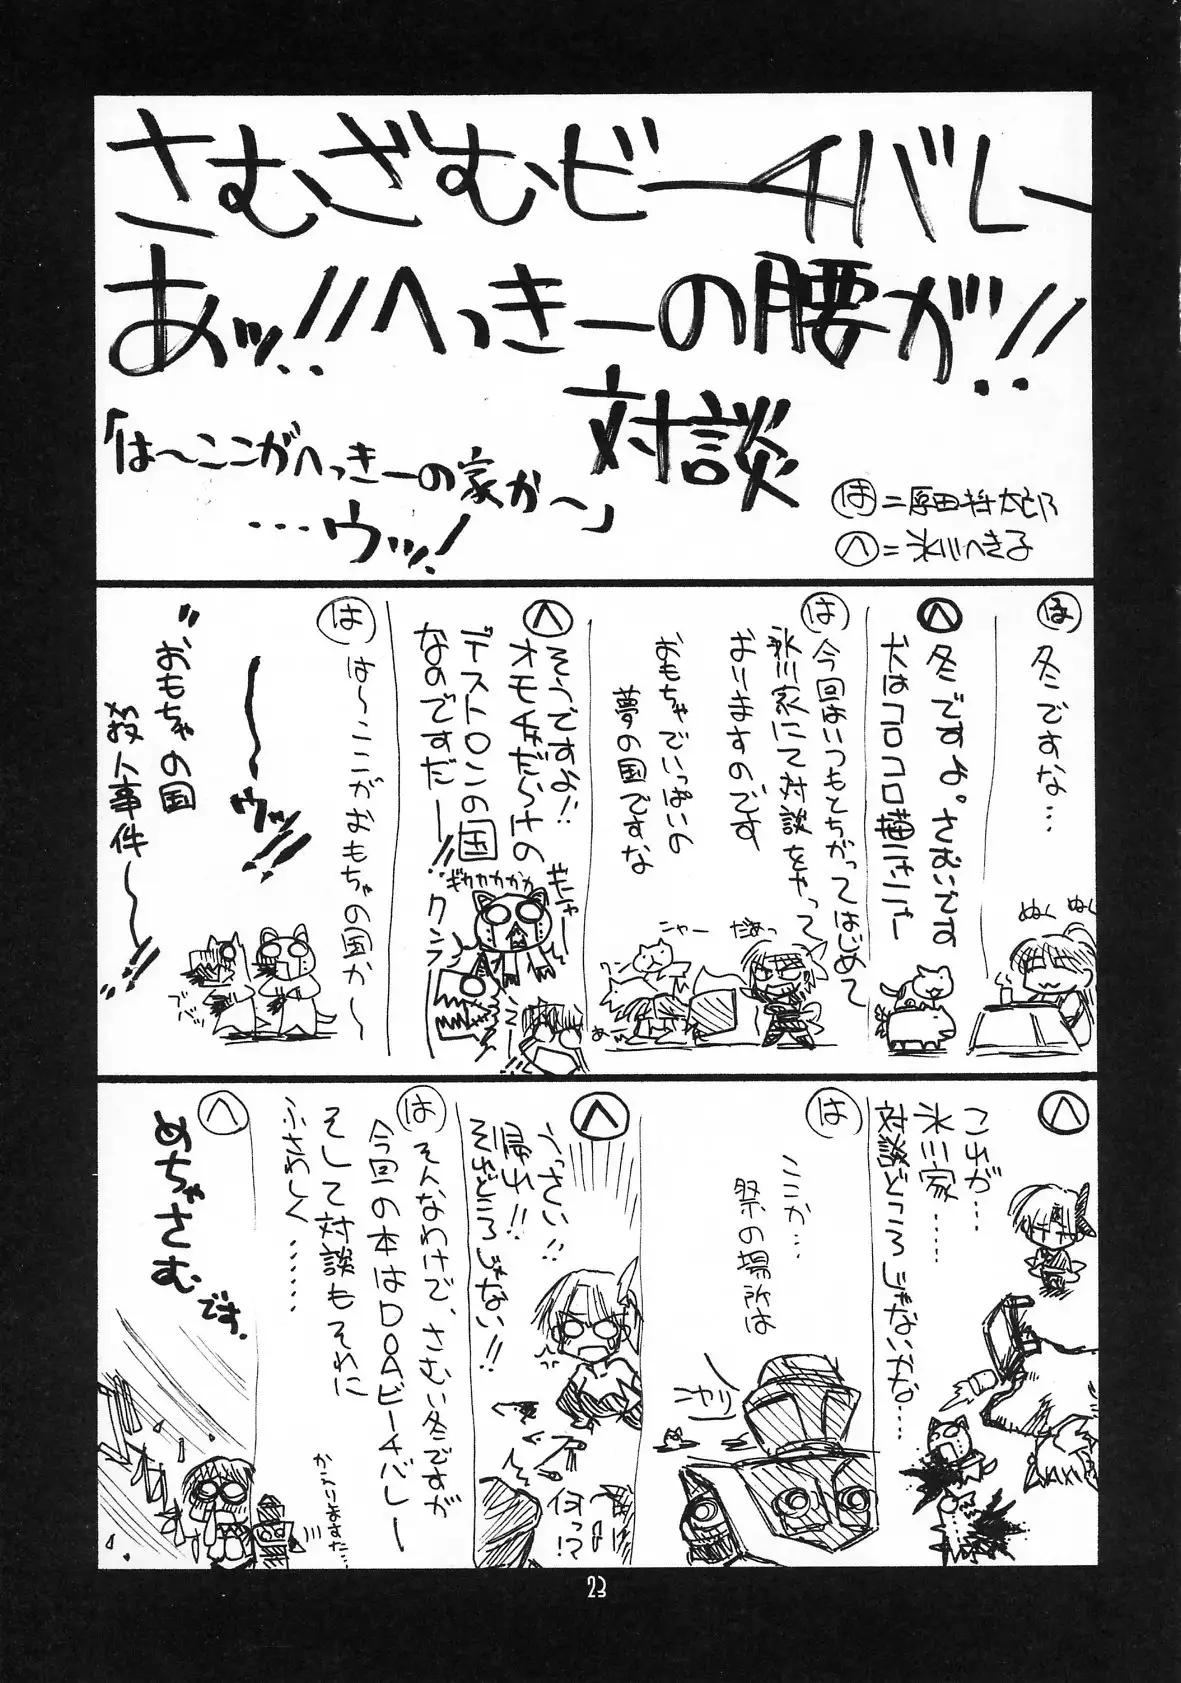 さむざむビーチバレー
あッ!!へっきーの腰が!!
対談
「はーここがへっきーの家かー」
…ウッ!
は=原田将太郎
へ=氷川へき子
は
冬ですな…
ぬくぬく
へ
冬ですよ。さむいです
犬はコロコロ猫ニャニャー
は
今回はいつもとちがってはじめて
氷川家にて対談をやって
おりますのです
おもちゃでいっぱいの
夢の国ですな
だぁっ
にゃー
へ
そうですよ!!
オモチャだらけの
デストロンの国
なのですだー!!
ギニャー
ギカカカカカ
は
はーここがおもちゃの国かー
〜ウッ!!
"おもちゃの国
殺人事件〜!!
へ
これが…
氷川家……
対談どころじゃないな…
は
ここか…
祭の場所は
へ
うっさい!!
帰れ!!
それどころじゃない!!
何っ!?
は
そんなわけで、さむい冬ですが
今回の本はDOAビーチバレー
そして対談もそれに
ふさわしく……
かえりますた…
へ
めちゃさむです.
23